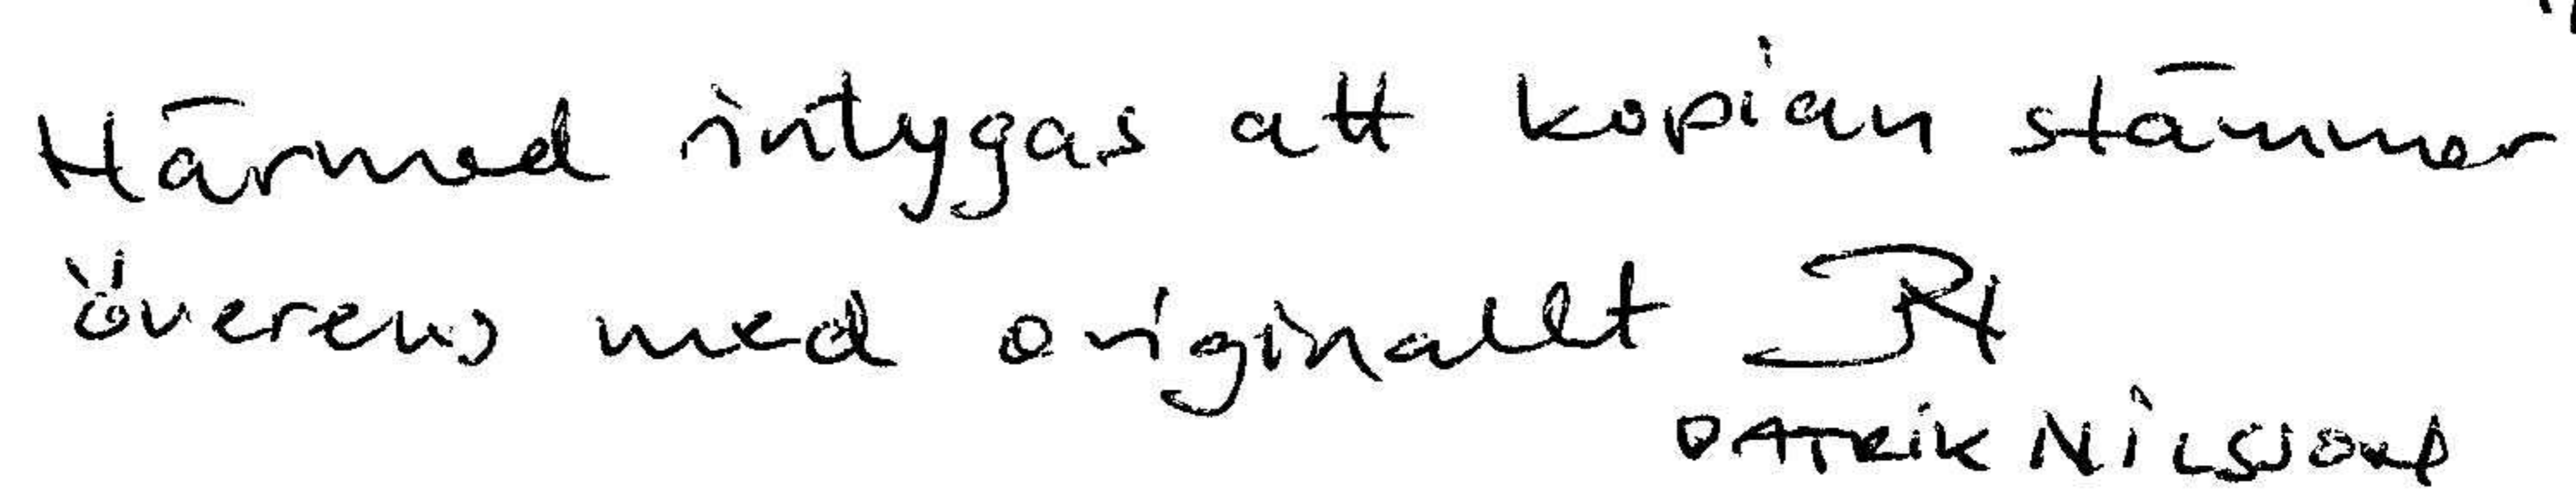 Härmed intygas att kopian stämmer
överens med originallt
PATRIK NILSSON